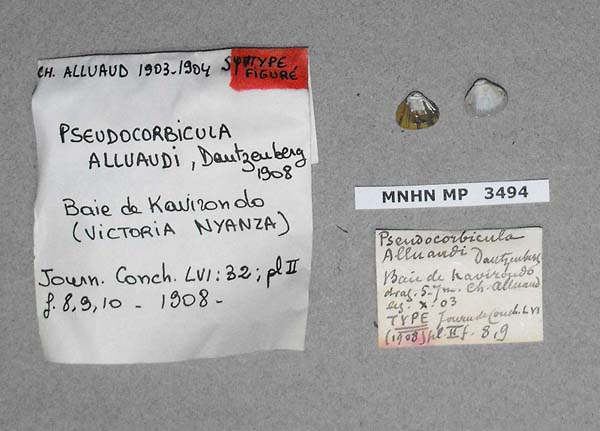 CH. ALLUAUD 1903-1904 SYNTYPE
FIGURÉ
PSEUDOCORBICULA
ALLUAUDI, Dautzenberg
1908
Baie de Kavirondo
(VICTORIA NYANZA)
Journ. Conch. LVI: 32; pl II
f. 8, 9, 10 - 1908 -
MNHN MP 3494
Pseudocorbicula
Alluaudi Dautzenberg
Baie de Kavirondo
drag. 5-7m. Ch. Alluaud
leg. X. 03
TYPE Journ de Conch. LVI
(1908) pl. II f. 8, 9